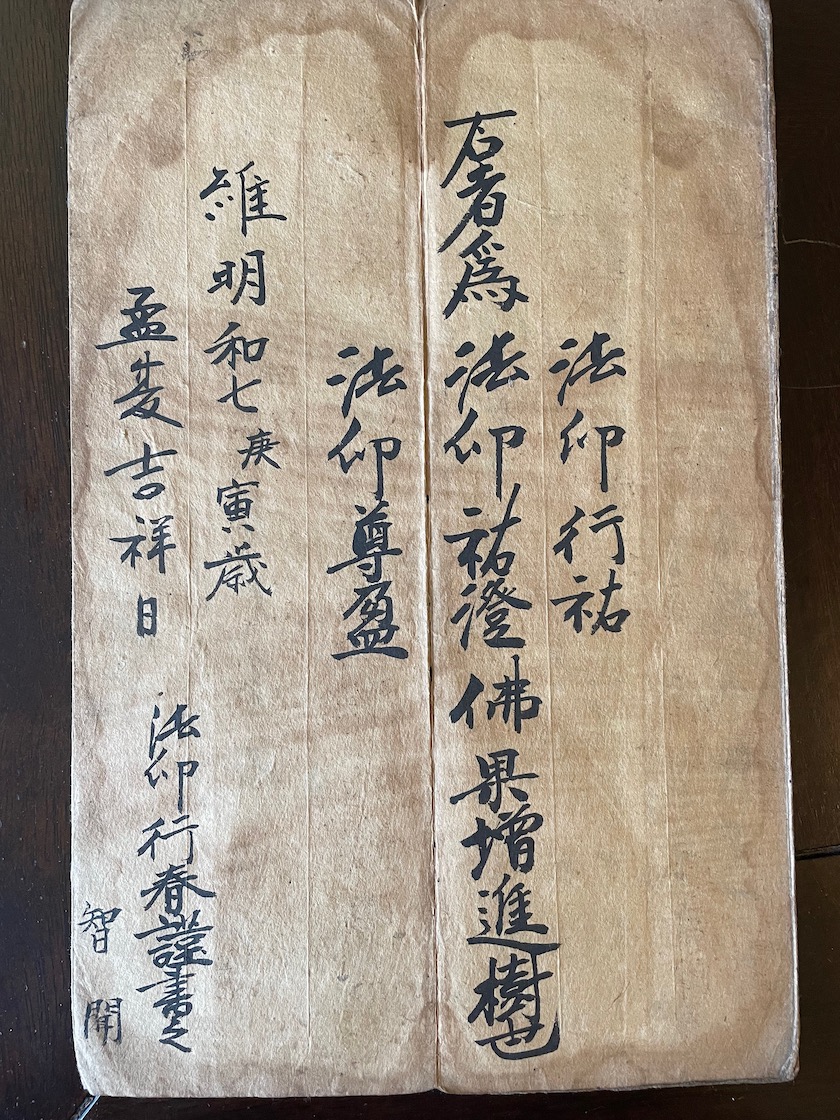 法印行祐
右者爲法印祐澄佛果增進樹也
法印尊盈
維明和七庚寅歳
孟夌吉祥日
法印行春謹書之
智聞